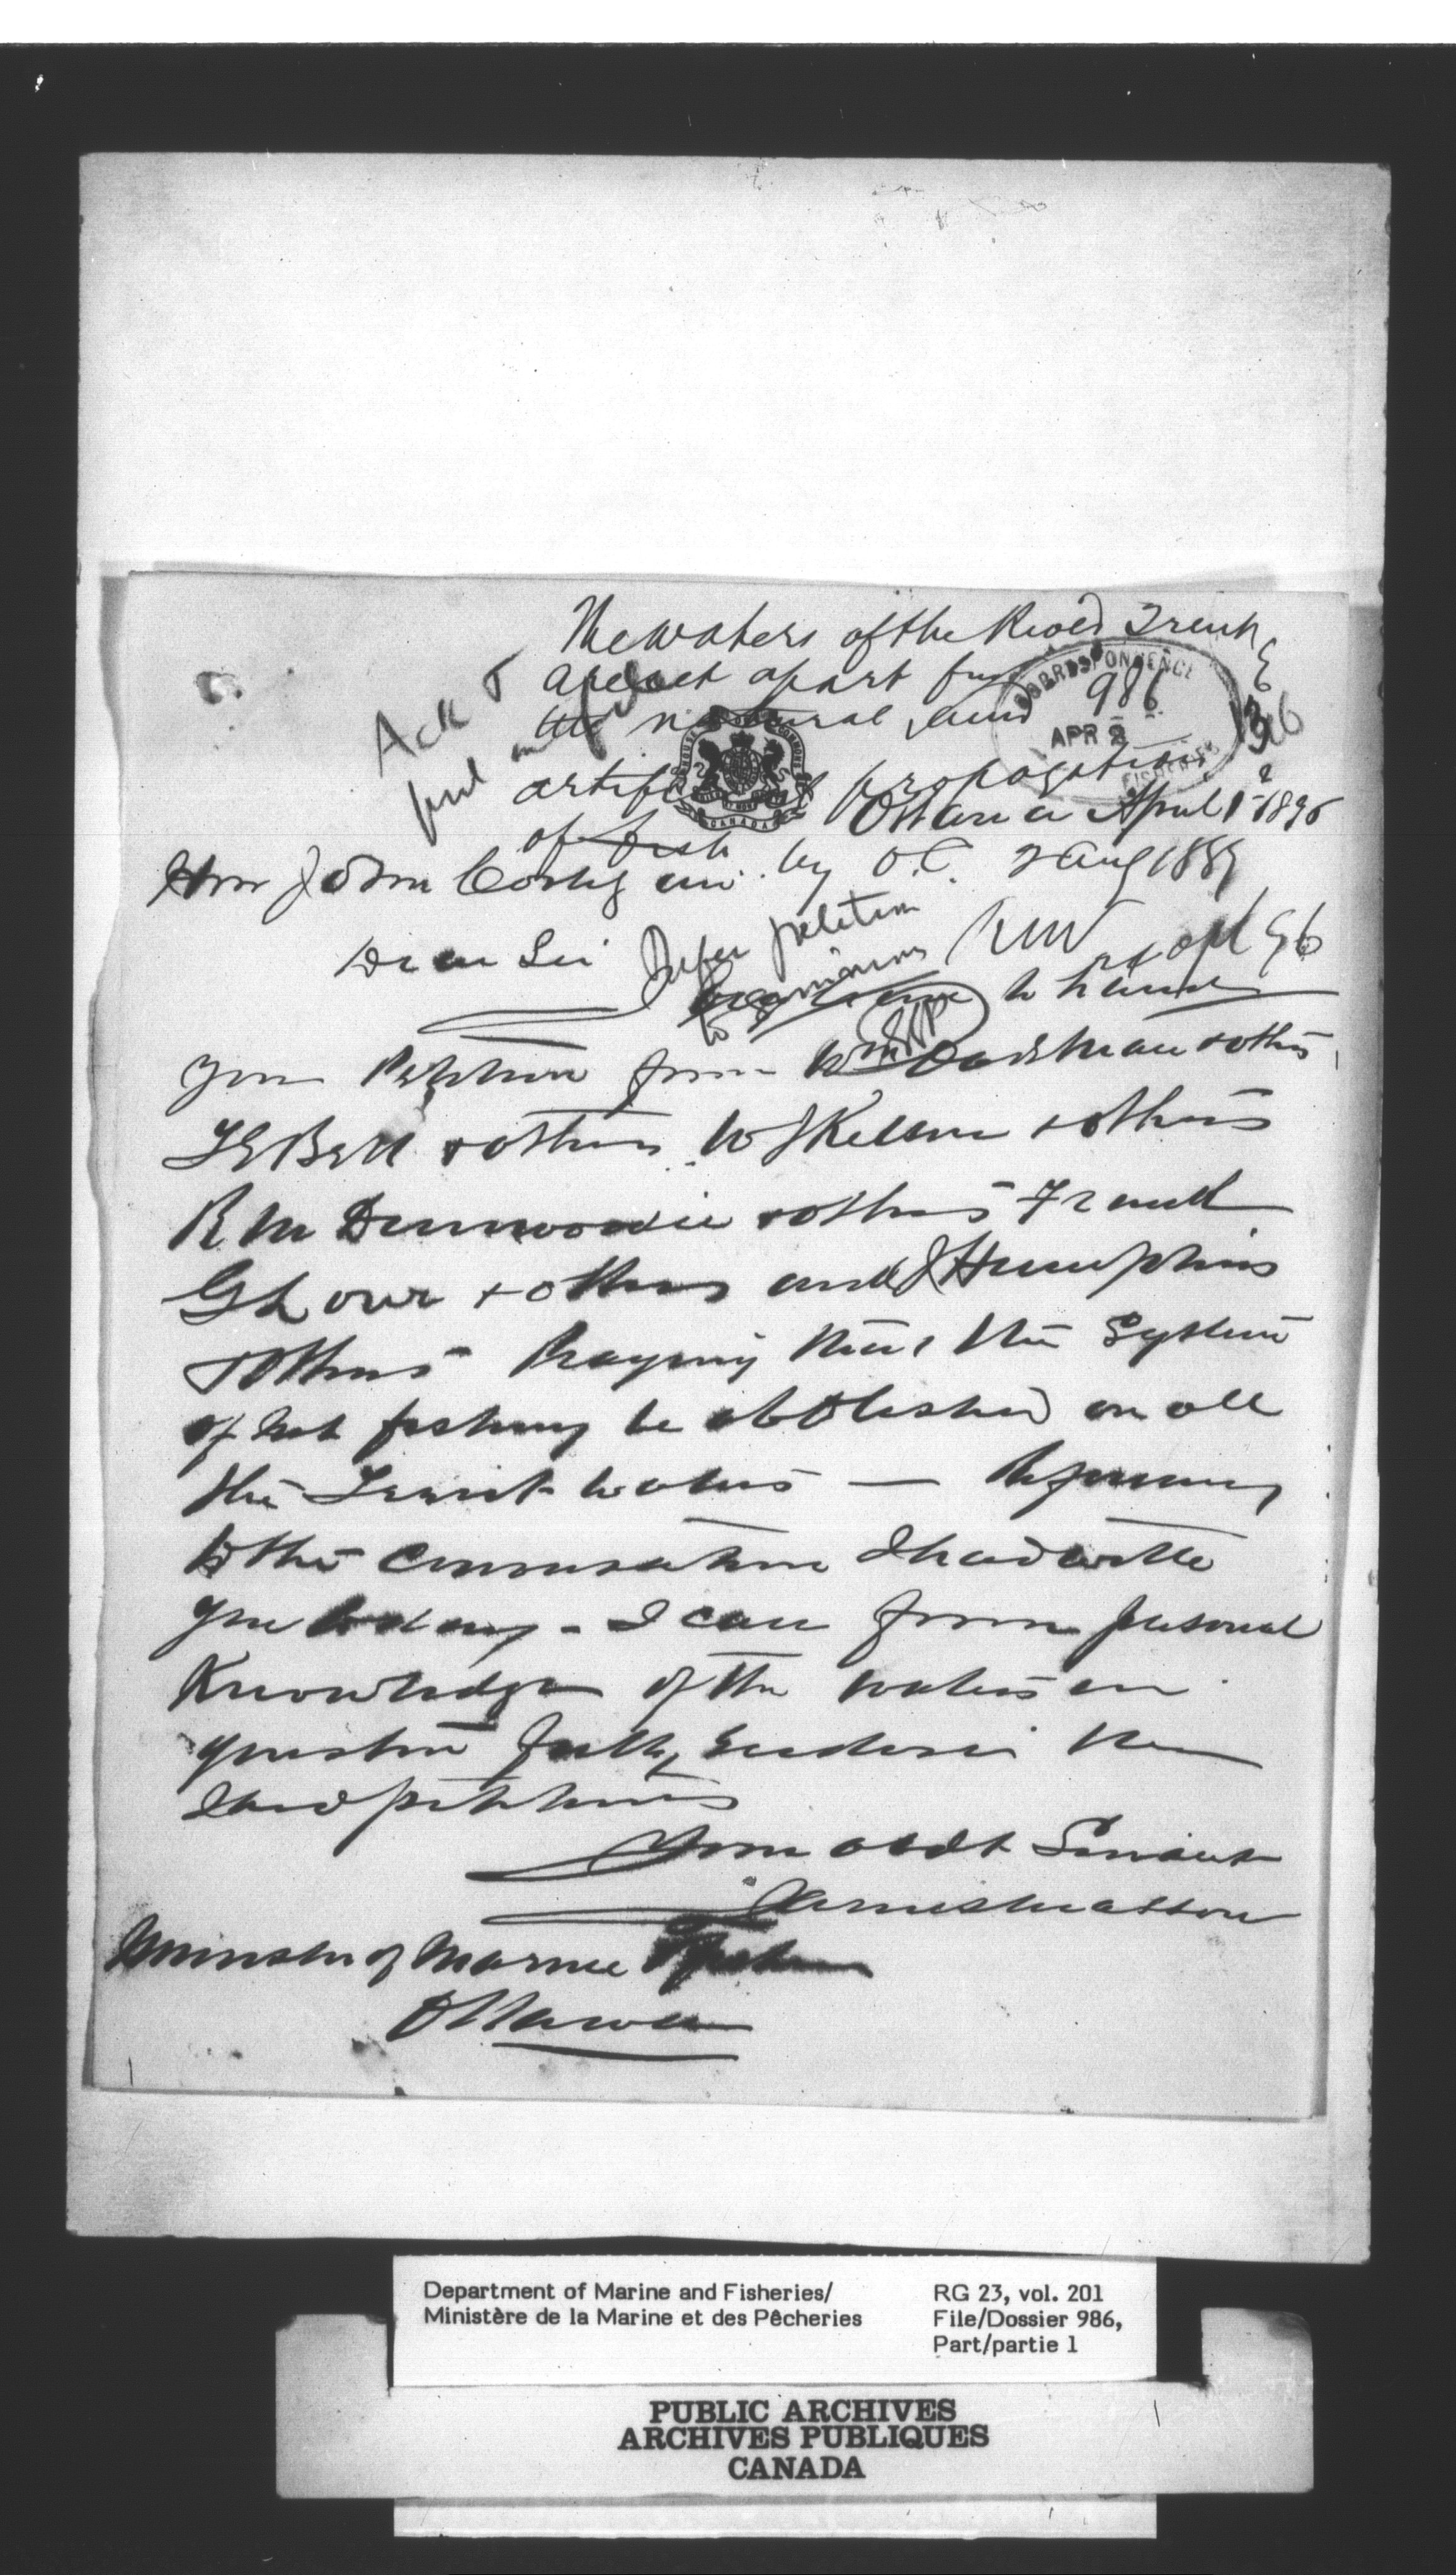 The waters of the River Trent
are set apart for
the natural and
artificial propagation
of fish by O.C. 2 Aug 1889
RNV
Ack &
put on file
CORRESPONDENCE
986
APR 2
FISHERIES
HOUSE OF COMMONS
CANADA
Ottawa April 1 1896
Hon John Costigan
Dear Sir
Refer petition
to
apl 96
I beg to hand
you Petition from Wm & others
T E Bell & others W J & others
R M Dunwoodie & others Frank
& others and J Humphries
& others Praying that the System
of net fishing be abolished on all
the Trent waters — Referring
to the conversation I had with
you today - I can from personal
Knowledge of the waters in
question fully endorse the
said petitions
Your obdt Servant
Minister of Marine & Fisheries
Ottawa
Department of Marine and Fisheries/
Ministère de la Marine et des Pêcheries
RG 23, vol. 201
File/Dossier 986,
Part/partie 1
PUBLIC ARCHIVES
ARCHIVES PUBLIQUES
CANADA